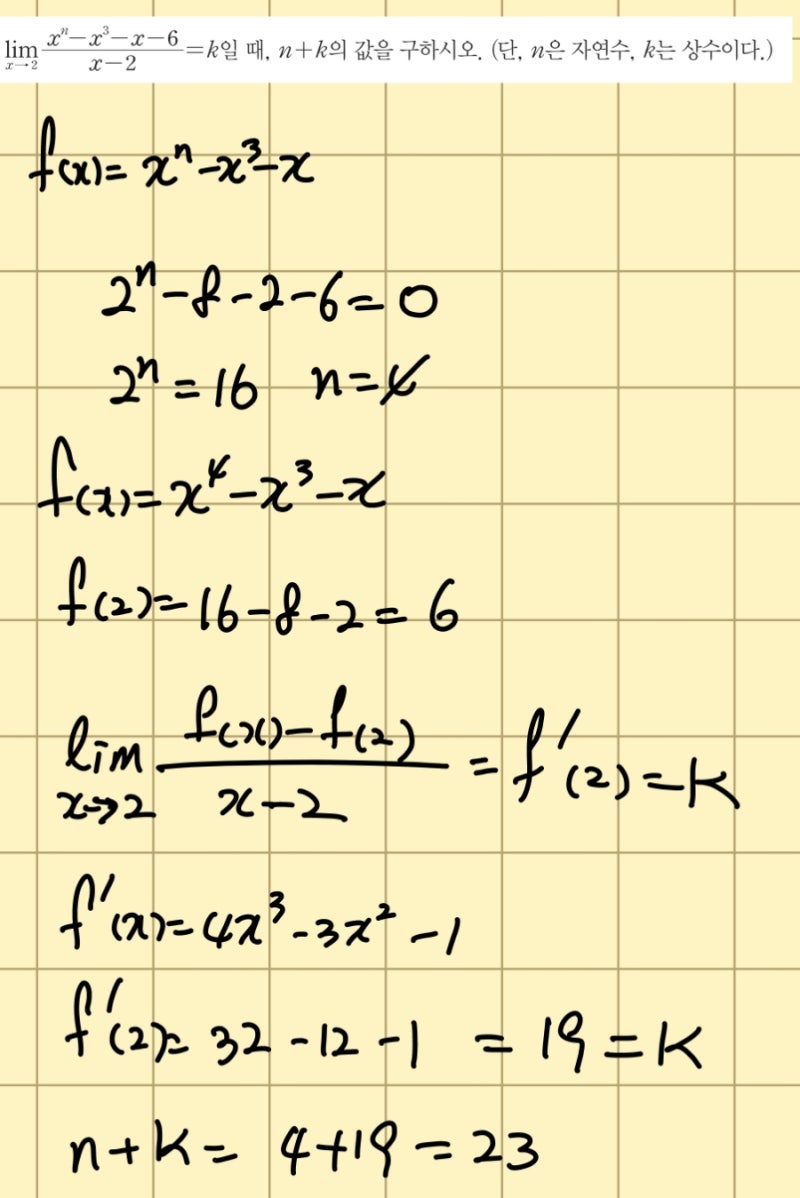 lim x→2 (xⁿ−x³−x−6)/(x−2) =k일 때, n+k의 값을 구하시오. (단, n은 자연수, k는 상수이다.)
f(x)= xⁿ−x³−x
2ⁿ−8−2−6=0
2ⁿ=16 n=4
f(x)=x⁴−x³−x
f(2)=16−8−2=6
lim x→2 (f(x)−f(2))/(x−2) =f′(2)=k
f′(x)=4x³−3x²−1
f′(2)=32−12−1 =19=k
n+k= 4+19=23